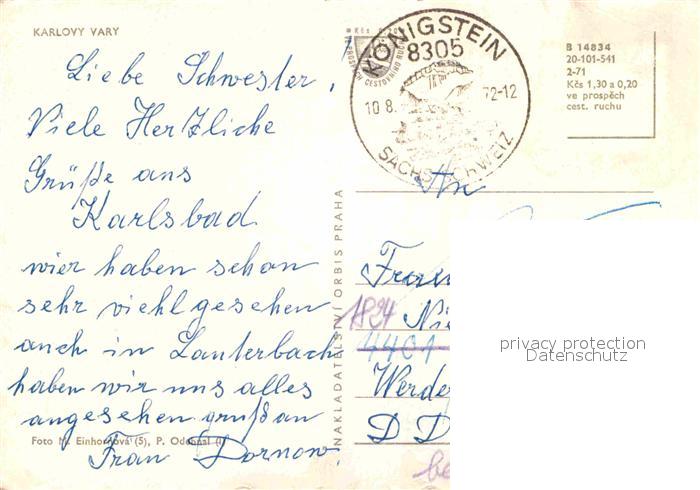 KARLOVY VARY
Liebe Schwester,
Viele Hertzliche
Grüße aus
Karlsbad
wier haben schon
sehr viehl gesehen
auch in Lauterbach
haben wir uns alles
angesehen gruß an
Frau Dornow.
Foto M. Einhornová (5), P. Odehnal
NAKLADATELSTVÍ ORBIS PRAHA
Kčs
CESTOVNÍHO RUCHU
KÖNIGSTEIN
8305
10.8. 72-12
SÄCHS. SCHWEIZ
B 14834
20-101-541
2-71
Kčs 1,30 a 0,20
ve prospěch
cest. ruchu
An
1824
4401
Werde
D D
privacy protection
Datenschutz